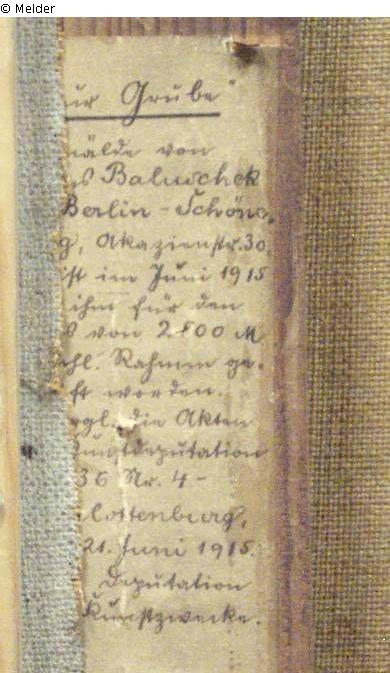 © Melder
ur Grube"
mälde von
s Baluschek
Berlin-Schöne-
g, Akazienstr. 30.
ist im Juni 1915
ihm für den
s von 2800 M
chl. Rahmen ge-
ft worden.
rgl. die Akten
Kunstdeputation
36 Nr. 4-
lottenburg,
21. Juni 1915.
Deputation
Kunstzwecke.